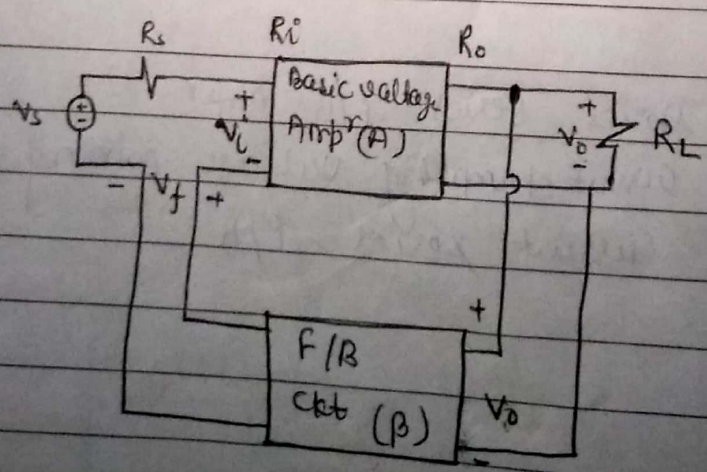 Rs Ri Ro
Basic voltage
Ampr (A)
Vs
+
Vi
-
+
Vo
-
RL
- Vf +
+
F/B
Ckt (β)
Vo
-